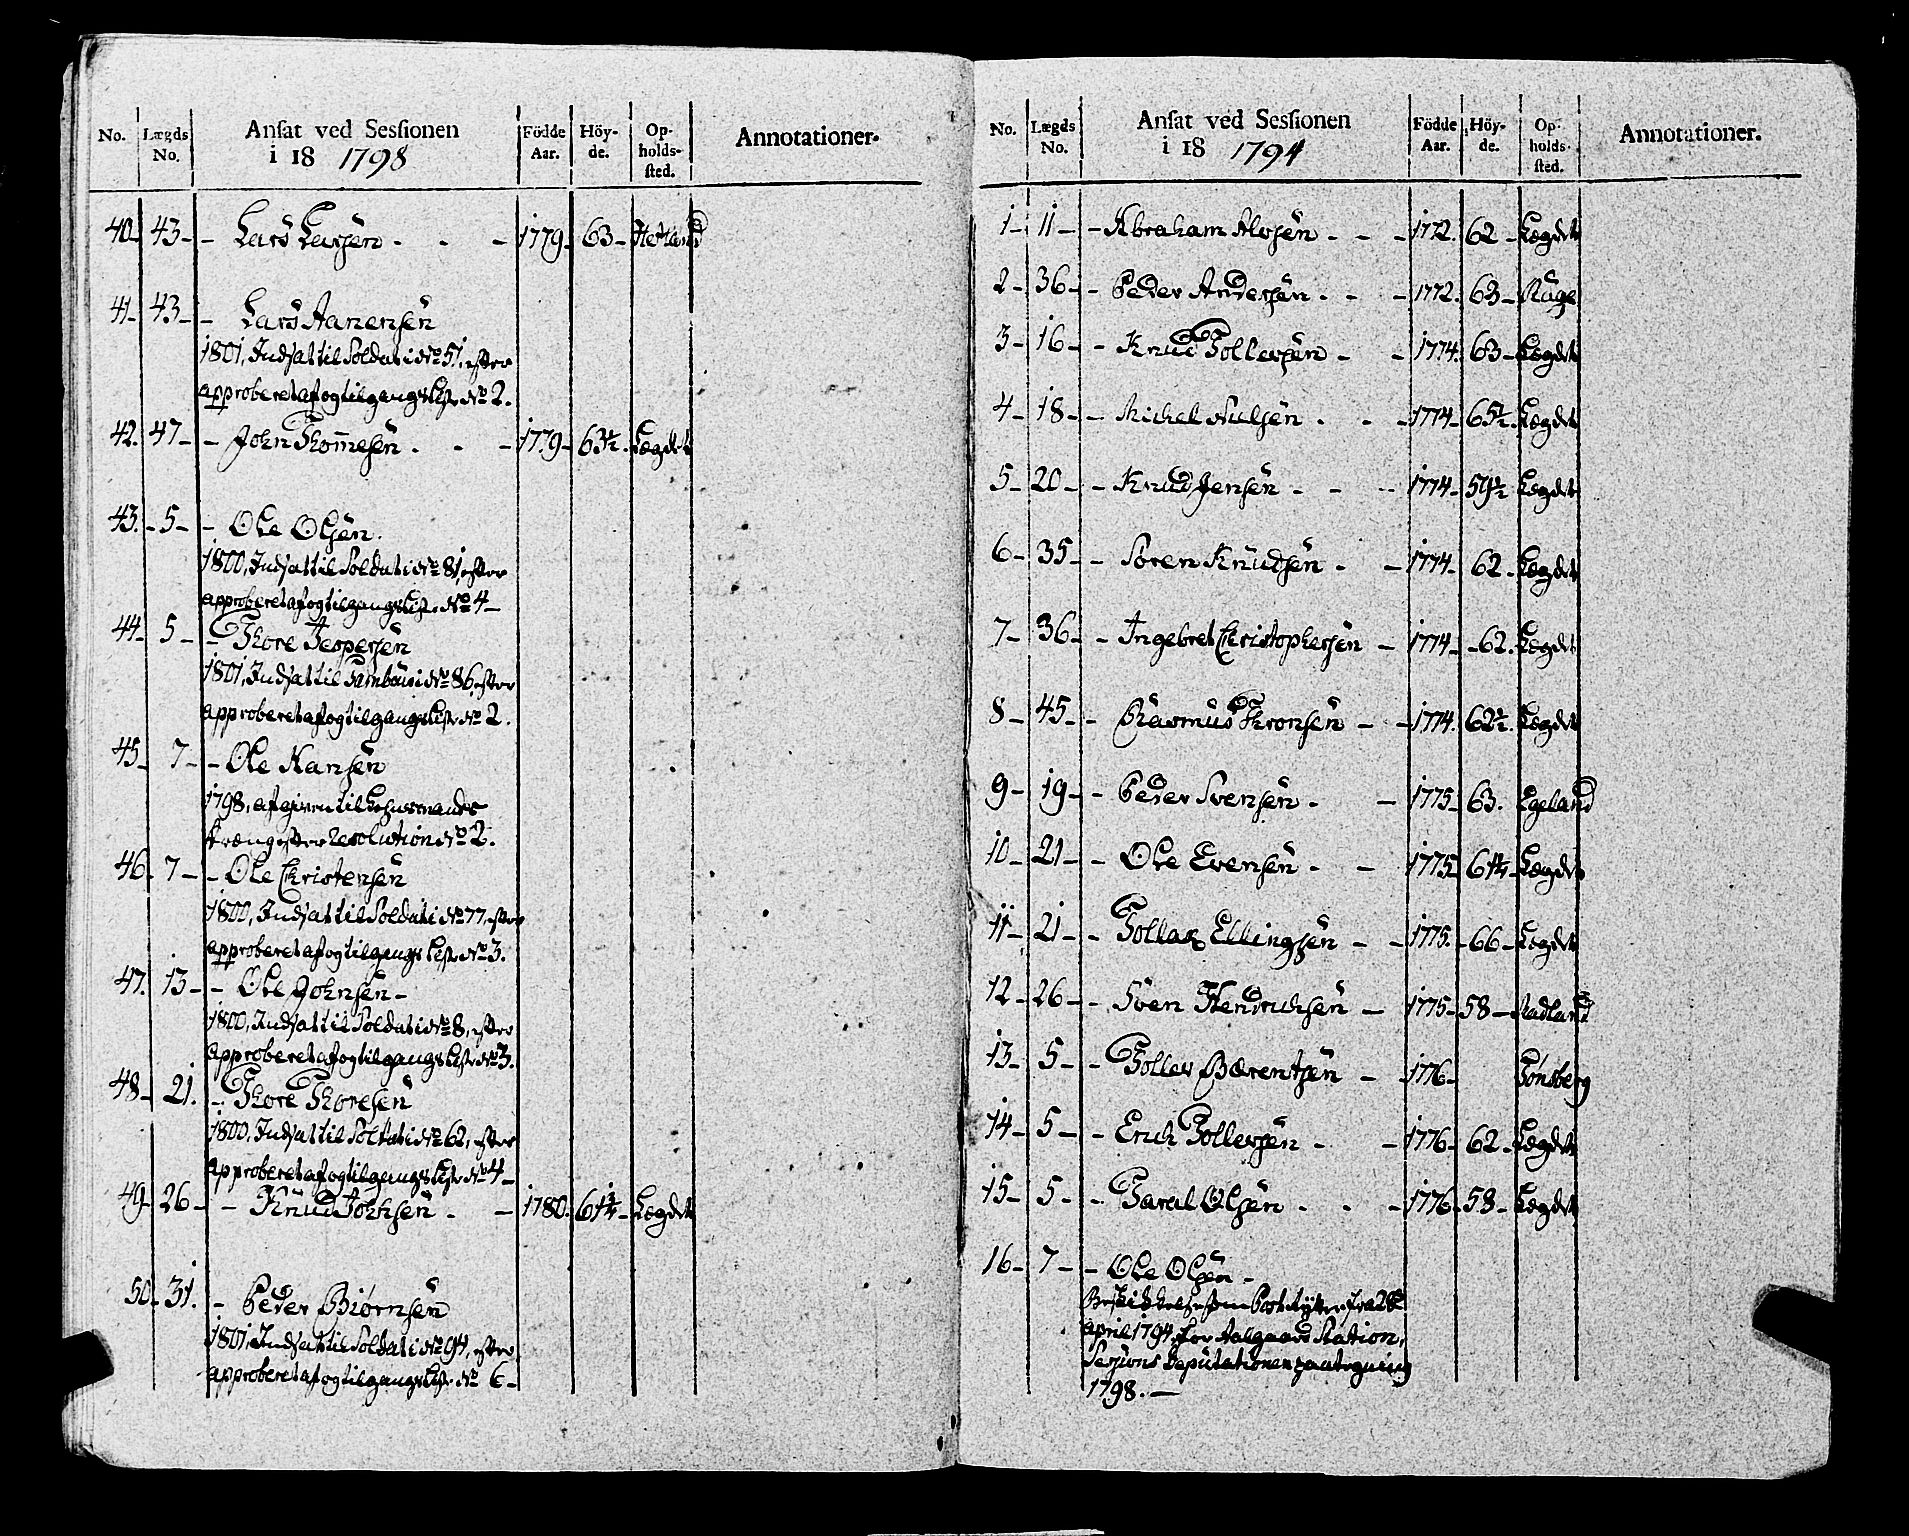 No. Lægds No. Ansat ved Sessionen i 18 1798 Födde Aar. Höyde. Opholdssted. Annotationer.
40 - 43 - - Lars Larsen - - - 1779 - 63 - Hetland
41 - 43 - - Lars Aanensen
1801, Indsat til Soldat i No 51, efter
approberet af og tilgangs Liste No 2.
42. 47 - - John Thommesen - - - 1779 - 63½. Lægdet
43. - 5 - - Ole Olsen.
1800, Indsat til Soldat i No 81, efter
approberet af og tilgangs Liste No 4 -
44 - 5 - - Thore Jespersen
1801, Indsat til Tambour i No 86, efter
approberet af og tilgangs Liste No 2.
45 - 7 - - Ole Hansen
1798, afgiven til
efter resolution No 2.
46 - 7 - - Ole Christensen
1800, Indsat til Soldat i No 77, efter
approberet af og tilgangs Liste No 3.
47. 13 - - Ole Johnsen -
1800, Indsat til Soldat i No 8, efter
approberet af og tilgangs Liste No 3.
48 - 21. - Thore Thoresen
1800, Indsat til Soldat i No 62, efter
approberet af og tilgangs Liste No 4 -
49 - 26 - - Knud - - 1780. Lægdet
50 - 31. - Peder Biørnsen
1801, Indsat til Soldat i No 94, efter
approberet af og tilgangs Liste No 6 -
No. Lægds No. Ansat ved Sessionen i 18 1794 Födde Aar. Höyde. Opholdssted. Annotationer.
1 - 11 - - Abraham Alvsen - - - 1772. 62 - Lægdet
2 - 36 - - Peder Andersen - - - 1772. 63 - Ruge
3 - 16 - - Knud Tollevsen - - 1774. 63 - Lægdet
4 - 18 - - Michel Nielsen - - - 1774 - 65½. Lægdet
5 - 20 - - Knud Jensen - - - 1774 - Lægdet
6 - 35 - - Søren Knudsen - - 1774 - 62 - Lægdet
7 - 36 - - Ingebret Christophersen - 1774 - - 62. Lægdet
8 - 45 - - Rasmus Thronsen - - 1774. 62½. Lægdet
9 - 19 - - Peder Svensen - - 1775 - 63. Egeland
10 - 21 - - Ole Evensen - - 1775 - Lægdet
11 - 21 - - Tollak Ellingsen - - 1775. - 66 - Lægdet
12 - 26 - - Sven Hendrichsen - 1775 - 58 - Radland
13 - 5 - - Tollev Bærentsen - 1776 - Tønsberg
14 - 5 - - Erich Tollevsen - - 1776 - 62 - Lægdet
15 - 5 - - Taral Olsen - - - 1776 - 58 - Lægdet
16 - 7 - - Ole Olsen -
som Postflytter fra 28de
April 1794, for Aalgaard Station,
Sessions Deputationens paategning
1798. -